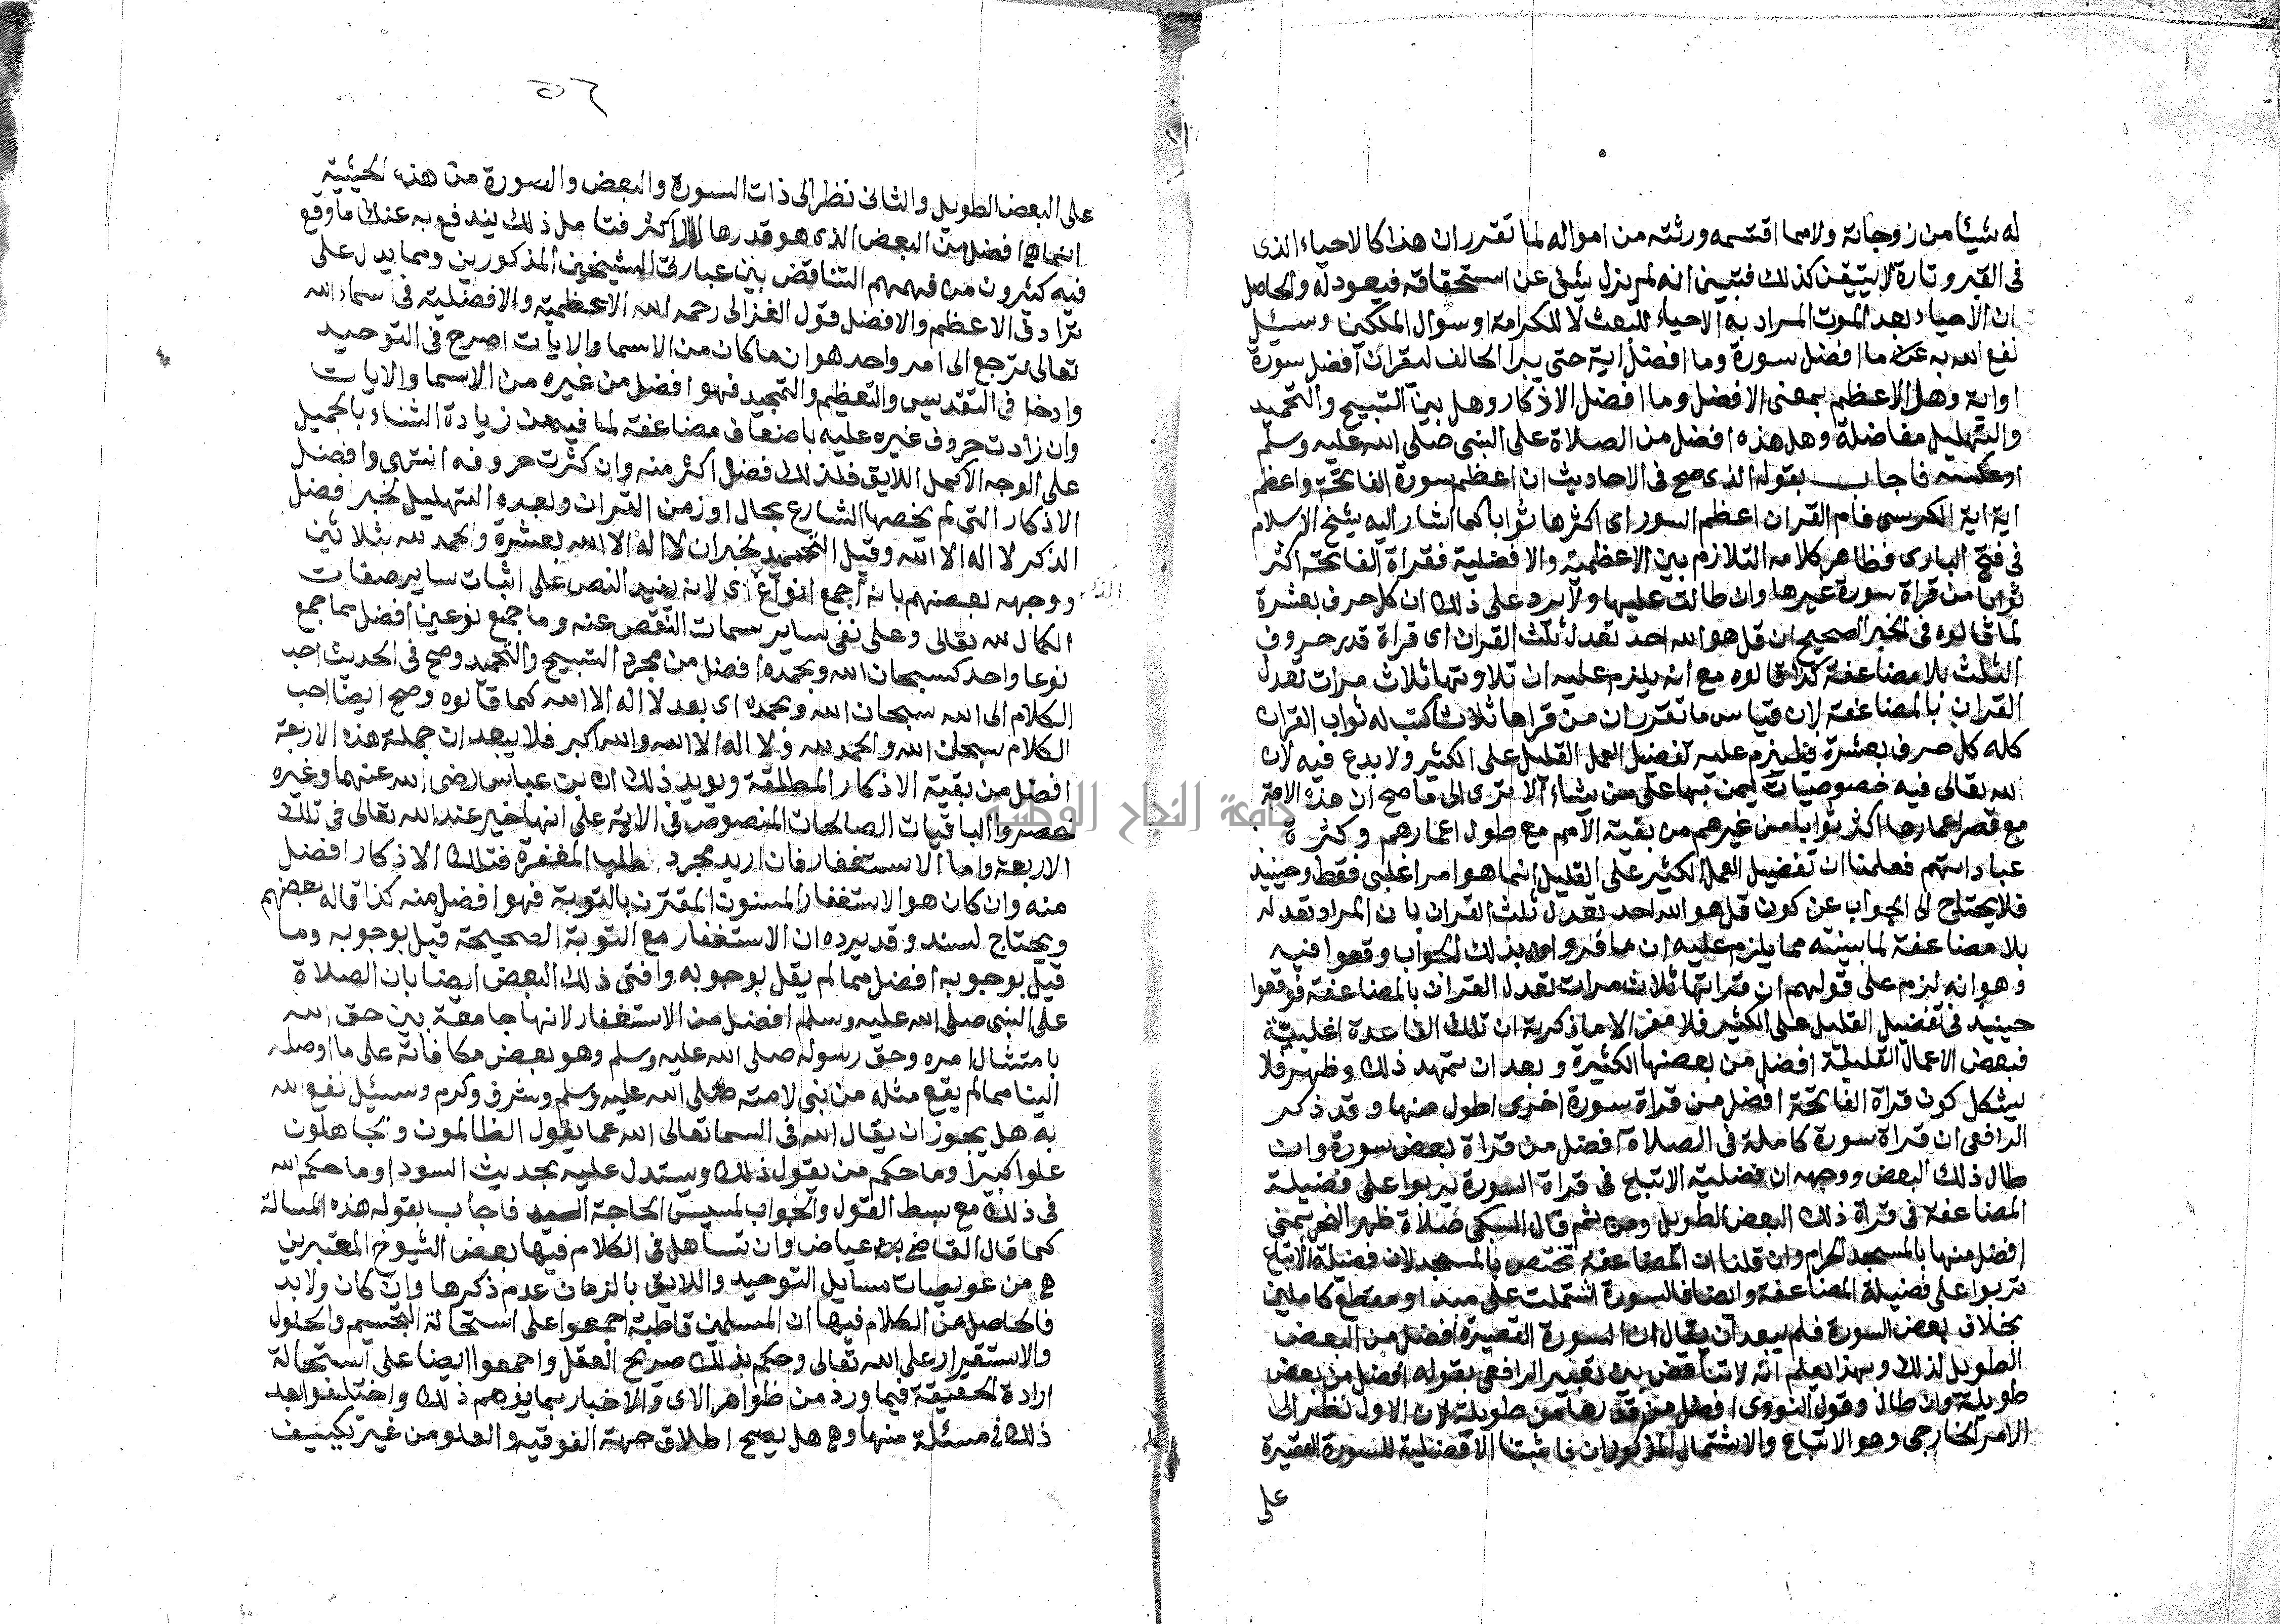 له شيئا من زوجاته ولا مما اقتسمه ورثته من امواله لما تقرر ان هذا كالاحياء الذى
فى القبر وتارة لا يتيقن كذلك فتبين انه لم يزل شئ عن استحقاقه فيعود له والحاصل
ان الاحياء بعد الموت المراد به الاحياء للبعث لا للكرامة او سوال الملكين وسيئل
نفع الله به عن ما افضل سورة وما افضل اية حتى يبرا الحالف ليقران افضل سورة
او اية وهل الاعظم بمعنى الافضل وما افضل الاذكار وهل بين التسبيح والتحميد
والتهليل مفاضلة وهل هذه افضل من الصلاة على النبى صلى الله عليه وسلم
او عكسه فاجاب بقوله الذى صح فى الاحاديث ان اعظم سورة الفاتحة واعظم
اية اية الكرسى فام القران اعظم السور اى اكثرها ثوابا كما اشار اليه شيخ الاسلام
فى فتح البارى فظاهر كلامه التلازم بين الاعظمية والافضلية فقراة الفاتحة اكثر
ثوابا من قراة سورة غيرها وان طالت عليها ولا يرد على ذلك ان كل حرف بعشرة
لما قالوه فى الخبر الصحيح ان قل هو الله احد تعدل ثلث القران اى قراة قدر حروف
الثلث بلا مضاعفة كذا قالوه مع انه يلزم عليه ان تلاوتها ثلاث مرات تعدل
القران بالمضاعفة لان قياس ما تقرر ان من قراها ثلاث كتب له ثواب القران
كله كل حرف بعشرة فيلزم عليه تفضيل العمل القليل على الكثير ولا بدع فيه لان
لله تعالى فيه خصوصيات يمن بها على من يشاء الا ترى الى ما صح ان هذه الامة
مع قصر اعمارها اكثر ثوابا من غيرهم من بقية الامم مع طول اعمارهم وكثرة
عباداتهم فعلمنا ان تفضيل العمل الكثير على القليل انما هو امر اغلبى فقط وحينيذ
فلا يحتاج الى الجواب عن كون قل هو الله احد تعدل ثلث القران بان المراد تعدله
بلا مضاعفة لما بينته مما يلزم عليه ان ما فروا منه بذلك الجواب وقعوا فيه
وهو انه لزم على قولهم ان قراتها ثلاث مرات تعدل القران بالمضاعفة فوقعوا
حينيذ فى تفضيل القليل على الكثير فلا مفر الا ما ذكرته ان تلك القاعدة اغلبية
فبعض الاعمال القليلة افضل من بعضها الكثيرة وبعد ان تمهد ذلك وظهر فلا
يشكل كون قراة الفاتحة افضل من قراة سورة اخرى اطول منها وقد ذكر
الرافعى ان قراة سورة كاملة فى الصلاة افضل من قراة بعض سورة وان
طال ذلك البعض ووجهه ان فضلية الاتباع فى قراة السورة يربوا على فضيلة
المضاعفة فى قراة ذلك البعض الطويل ومن ثم قال السبكى صلاة ظهر النحر بمنى
افضل منها بالمسجد الحرام وان قلنا ان المضاعفة تختص بالمسجد لان فضيلة الاتباع
تربوا على فضيلة المضاعفة وايضا فالسورة اشتملت على مبدا ومقطع كاملين
بخلاف بعض السورة فلم يبعد ان يقال ان السورة القصيرة افضل من البعض
الطويل لذلك وبهذا يعلم انه لا تناقض بين تعبير الرافعى بقوله افضل من بعض
طويلة وان طال وقول النووى افضل من قدرها من طويلة لان الاول نظر الى
الامر الخارجى وهو الاتباع والاشتمال المذكوران فاثبتنا الافضلية للسورة القصيرة
على
٥٦
على البعض الطويل والثانى نظر الى ذات السورة والبعض والسورة من هذه الحيثية
انما هى افضل من البعض الذى هو قدرها لا اكثر فتامل ذلك يندفع به عنك ما وقع
فيه كثيرون من فهمهم التناقض بين عبارتى الشيخين المذكورين ومما يدل على
ترادف الاعظم والافضل قول الغزالى رحمه الله الاعظمية والافضلية فى اسماء الله
تعالى ترجع الى امر واحد هو ان ما كان من الاسما والايات اصرح فى التوحيد
وادخل فى التقديس والتعظيم والتمجيد فهو افضل من غيره من الاسما والايات
وان زادت حروف غيره عليه باضعاف مضاعفة لما فيه من زيادة الثناء بالجميل
على الوجه الاكمل اللايق فلذلك فضل اكثر منه وان كثرت حروفه انتهى وافضل
الاذكار التى لم يخصها الشارع بحال او زمن القران وبعده التهليل لخبر افضل
الذكر لا اله الا الله وقيل التحميد لخبر ان لا اله الا الله بعشرة والحمد لله بثلاثين
ووجهه بعضهم بانه اجمع انواع اى لانه يفيد النص على اثبات ساير صفات
الكمال لله تعالى وعلى نفى ساير سمات النقص عنه وما جمع نوعين افضل مما جمع
نوعا واحد كسبحان الله وبحمده افضل من مجرد التسبيح والتحميد وصح فى الحديث احب
الكلام الى الله سبحان الله وبحمده اى بعد لا اله الا الله كما قالوه وصح ايضا احب
الكلام سبحان الله والحمد لله ولا اله الا الله والله اكبر فلا يبعد ان جملة هذه الاربعة
افضل من بقية الاذكار المطلقة ويويد ذلك ان بن عباس رضى الله عنهما وغيره
خصروا الباقيات الصالحات المنصوص فى الاية على انها خير عند الله تعالى فى تلك
الاربعة واما الاستغفار فان اريد مجرد طلب المغفرة فتلك الاذكار افضل
منه وان كان هو الاستغفار المسنون المقترن بالتوبة فهو افضل منه كذا قاله بعضهم
ويحتاج لسند وقد يرده ان الاستغفار مع التوبة الصحيحة قيل بوجوبه وما
قيل بوجوبه افضل مما لم يقل بوجوبه وافتى ذلك البعض ايضا بان الصلاة
على النبى صلى الله عليه وسلم افضل من الاستغفار لانها جامعة بين حق الله
بامتثال امره وحق رسوله صلى الله عليه وسلم وهو بعض مكافاته على ما اوصله
الينا مما لم يقع مثله من نبى لامته صلى الله عليه وسلم وشرف وكرم وسيئل نفع الله
به هل يجوز ان يقال الله فى السما تعالى الله عما يقول الظالمون والجاهلون
علوا كبيرا وما حكم من يقول ذلك ويستدل عليه بحديث السودا وما حكم الله
فى ذلك مع بسط القول والجواب لمسيس الحاجة اليه فاجاب بقوله هذه المسالة
كما قال القاضى بن عياض وان تساهل فى الكلام فيها بعض الشيوخ المعتبرين
هى من عويصات مسايل التوحيد واللايق بالزمان عدم ذكرها وان كان ولا بد
فالحاصل من الكلام فيها ان المسلمين قاطبة اجمعوا على استحالة التجسيم والحلول
والاستقرار على الله تعالى وحكم بذلك صريح العقل واجمعوا ايضا على استحالة
ارادة الحقيقة فيما ورد من ظواهر الاى والاخبار مما يوهم ذلك واختلفوا بعد
ذلك فى مسئلة منها وهى هل يصح اطلاق جهة الفوقيه والعلو من غير تكييف
جامعة النجاح الوطنية